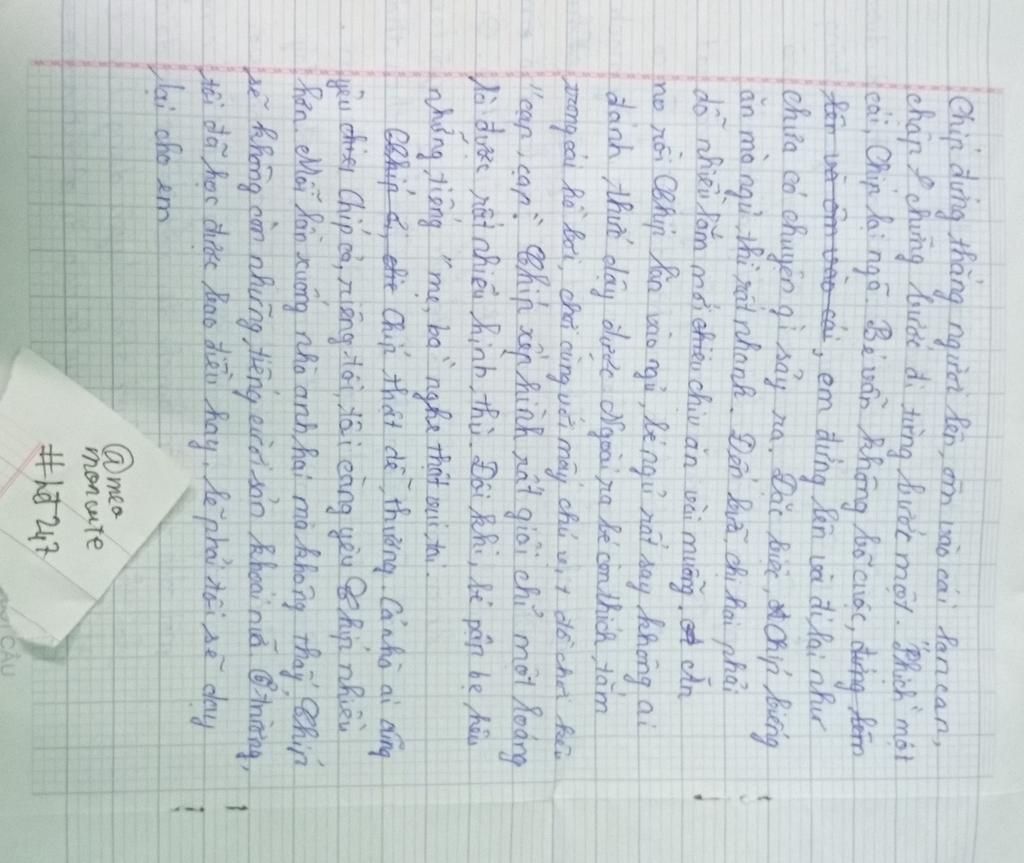 Chíp đứng thẳng người lên, ôm vào cái lan can,
chập chững bước đi từng bước một. "Phịch" một
cái, Chíp lại ngã. Bé vẫn không bỏ cuộc, đứng lên
lên và ôm vào cái, em đứng lên và đi lại như
chưa có chuyện gì sảy ra. Đặc biệt, Chíp biếng
ăn mà ngủ thì rất nhanh. Đến bữa, chị hai phải
dỗ nhiều lắm mới chịu ăn vài muỗng. Ăn
no rồi Chíp lăn vào ngủ, bé ngủ rất say không ai
đánh thức dậy được. Ngoài ra bé còn thích tắm
trong cái hồ bơi, chơi cùng với mấy chú vịt đồ chơi kêu
"cạp, cạp". Chíp xếp hình rất giỏi chỉ một loáng
là được rất nhiều hình thù. Đôi khi, bé bập bẹ kêu
những tiếng "mẹ, ba" nghe thật vui tai
Chíp thật dễ thương. Cả nhà ai cũng
yêu Chíp cả, riêng tôi, tôi càng yêu Chíp nhiều
hơn. Mỗi lần xuống nhà anh hai mà không thấy Chíp
sẽ không còn những tiếng cười sản khoái nữa. Ở trường,
tôi đã học được bao điều hay, lẽ phải tôi sẽ dạy
lại cho em
@meo
moncute
#hđ247
CÂU